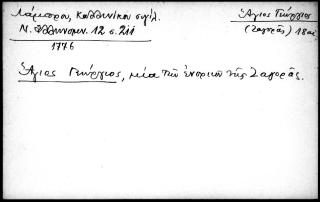 Λάμπρου, Καλλινίκου σιγίλ.
Ν. Ἑλληνομν. 12 σ. 211
1776
Ἅγιος Γεώργιος
(Ζαγορᾶς) 18 αἰ
Ἅγιος Γεώργιος, μία τῶν ἐνοριῶν τῆς Ζαγορᾶς.